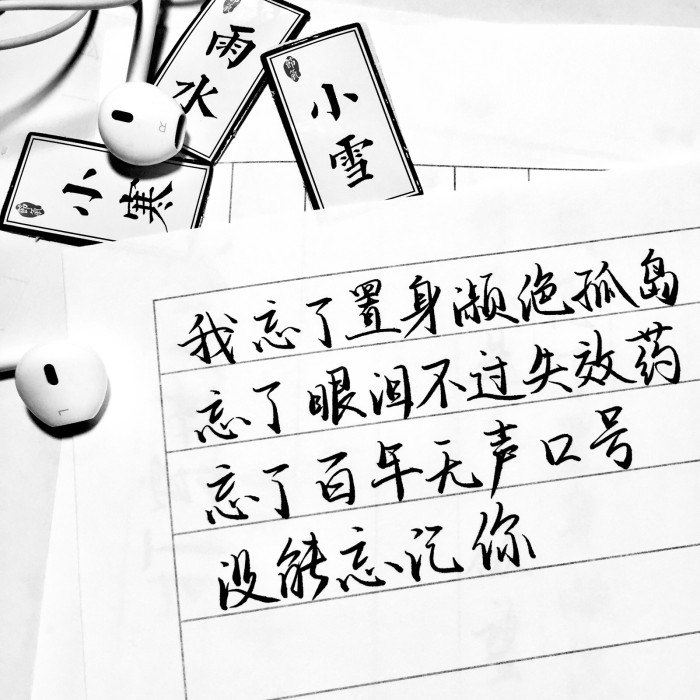 雨水
小雪
小寒
R
我忘了置身濒绝孤岛
忘了眼泪不过失效药
忘了百年无声口号
没能忘记你
L